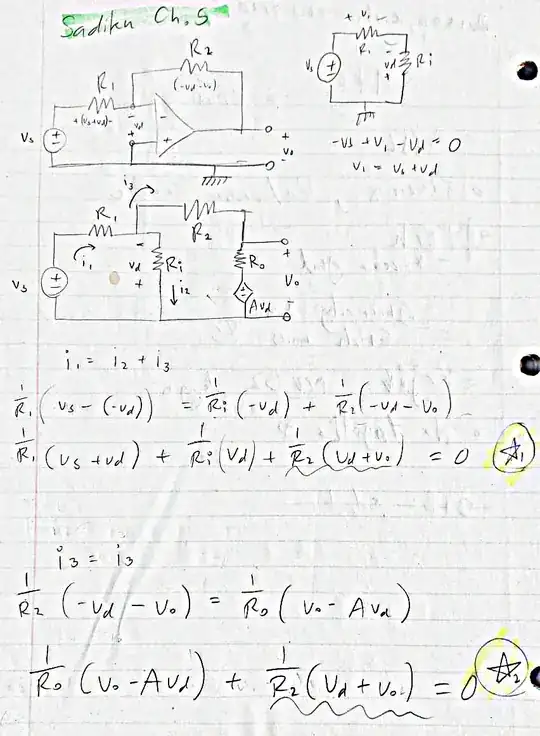 Sadiku Ch. 5
R2
(-vd-vo)
R1
+(vs+vd)-
- vd +
vs
+ vo -
+ v1 -
R1
vs
- vd +
Ri
-vs + v1 - vd = 0
v1 = vs + vd
i3
R1
R2
i1
- vd +
Ri
i2
Ro
+ Vo -
vs
Avd
i1 = i2 + i3
1/R1 (vs - (-vd)) = 1/Ri (-vd) + 1/R2 (-vd - vo)
1/R1 (vs + vd) + 1/Ri (vd) + 1/R2 (vd + vo) = 0 ☆1
i3 = i3
1/R2 (-vd - vo) = 1/Ro (vo - Avd)
1/Ro (vo - Avd) + 1/R2 (vd + vo) = 0 ☆2